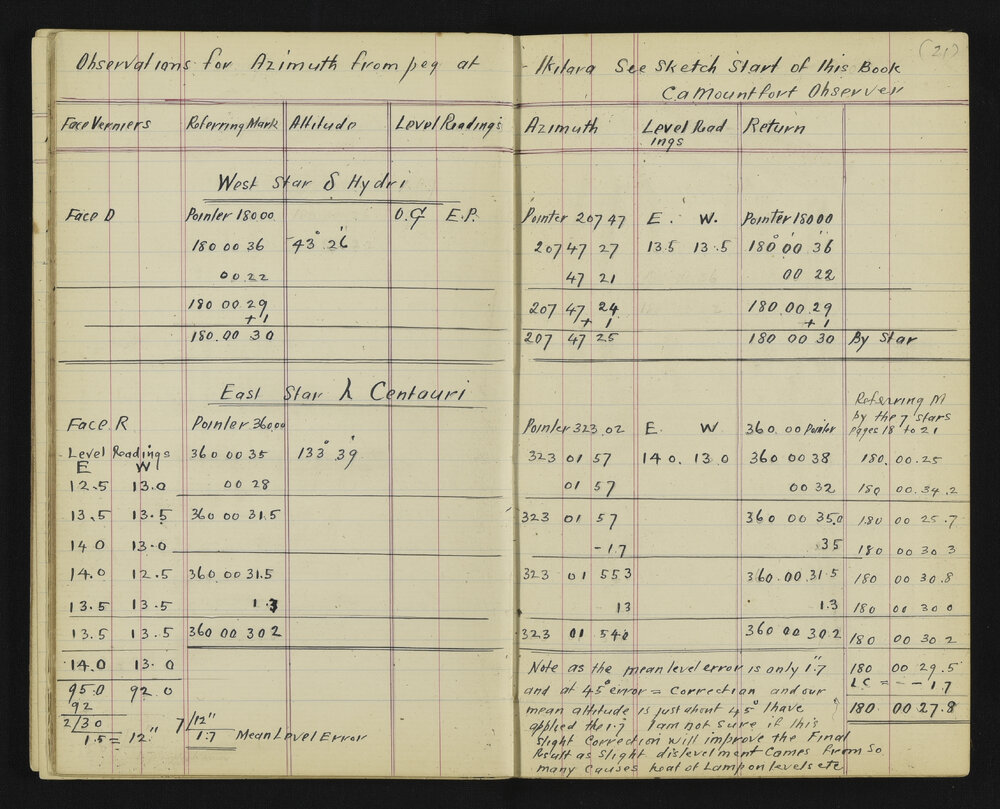 (21)
Observations for Azimuth from peg at - Ikitara See Sketch Start of this Book
CaMountfort Observer
Face Verniers Referring Mark Altitude Level Readings Azimuth Level Read Return
ings
West Star δ Hydri
Face D Pointer 180 00 O.G E.P. Pointer 207 47 E. W. Pointer 180 00
180 00 36 43° 26' 207 47 27 13.5 13.5 180° 00' 36"
00 22 47 21 00 22
180 00 29 207 47 24 180 00 29
+1 +1 +1
180.00 30 207 47 25 180 00 30 By Star
East Star λ Centauri
Referring M
by the 7 stars
Face R Pointer 360.00 Pointer 323.02 E. W 360.00 Pointer pages 18 to 21
Level Readings 360 00 35 133° 39' 323 01 57 14 0. 13 0 360 00 38 180.00.25
E W
12.5 13.0 00 28 01 57 00 32 180 00.34.2
13.5 13.5 360 00 31.5 323 01 57 360 00 35.0 180 00 25.7
14 0 13.0 -1.7 35 180 00 30 3
14.0 12.5 360 00 31.5 323 01 55 3 360.00.31.5 180 00 30.8
13.5 13.5 1.3 13 1.3 180 00 30 0
13.5 13.5 360 00 30 2 323 01 54 0 360 00 30 2 180 00 30 2
14.0 13.0 180 00 29.5
95.0 92.0 LC = - - 1.7
92 180 00 27.8
2/30
1.5 = 12." 7/12"
1.7 Mean Level Error
Note as the mean level error is only 1".7
and at 45° error = correction and our
mean altitude is just about 45° I have
applied the 1.7 I am not sure if this
slight correction will improve the Final
Result as slight dislevelment comes from so
many causes heat of Lamp on levels etc